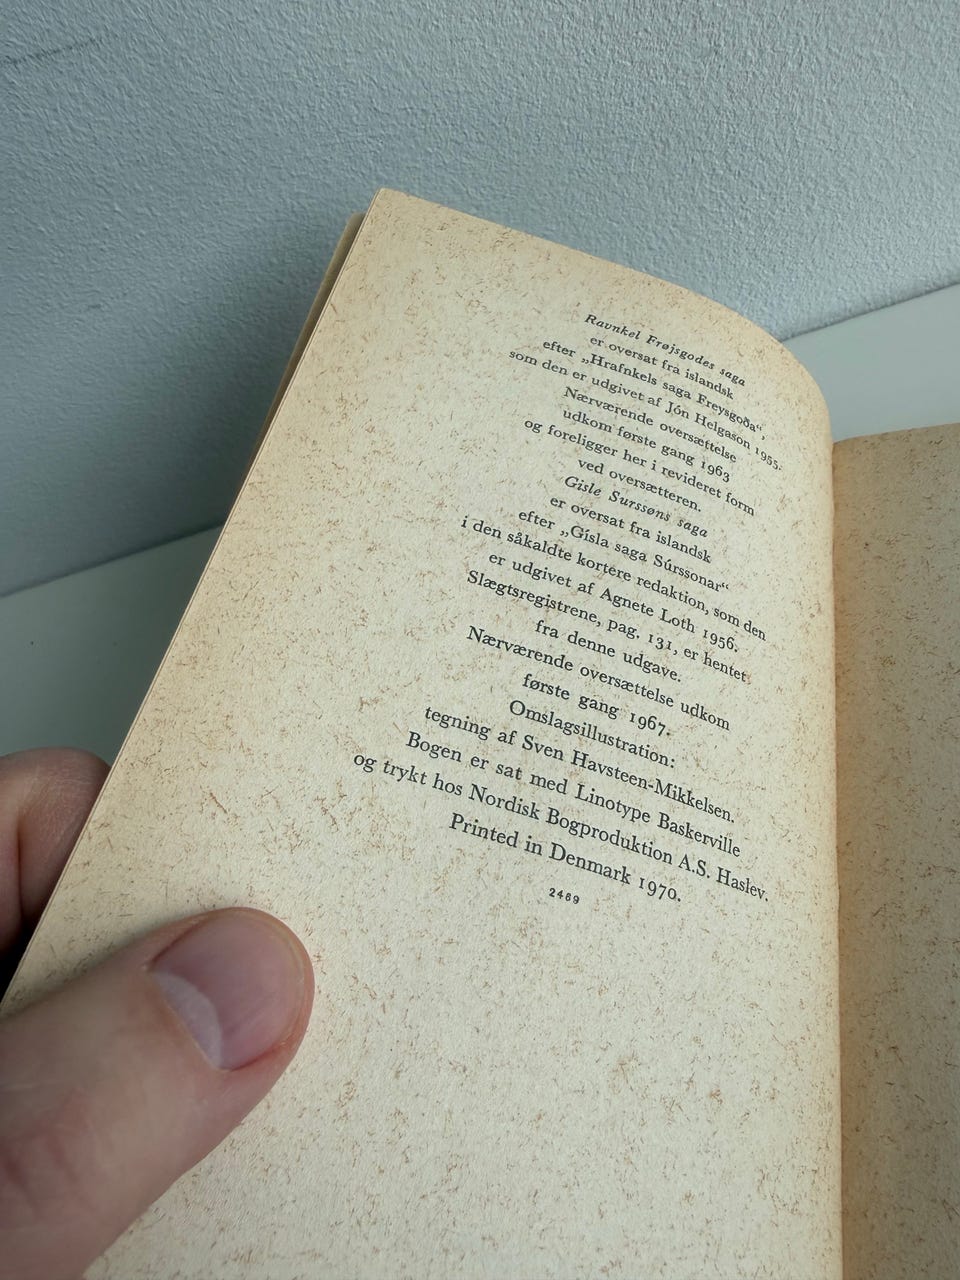 Ravnkel Frøjsgodes saga
er oversat fra islandsk
efter „Hrafnkels saga Freysgoða“,
som den er udgivet af Jón Helgason 1955.
Nærværende oversættelse
udkom første gang 1963
og foreligger her i revideret form
ved oversætteren.
Gisle Surssøns saga
er oversat fra islandsk
efter „Gísla saga Súrssonar“
i den såkaldte kortere redaktion, som den
er udgivet af Agnete Loth 1956.
Slægtsregistrene, pag. 131, er hentet
fra denne udgave.
Nærværende oversættelse udkom
første gang 1967.
Omslagsillustration:
tegning af Sven Havsteen-Mikkelsen.
Bogen er sat med Linotype Baskerville
og trykt hos Nordisk Bogproduktion A.S. Haslev.
Printed in Denmark 1970.
2469